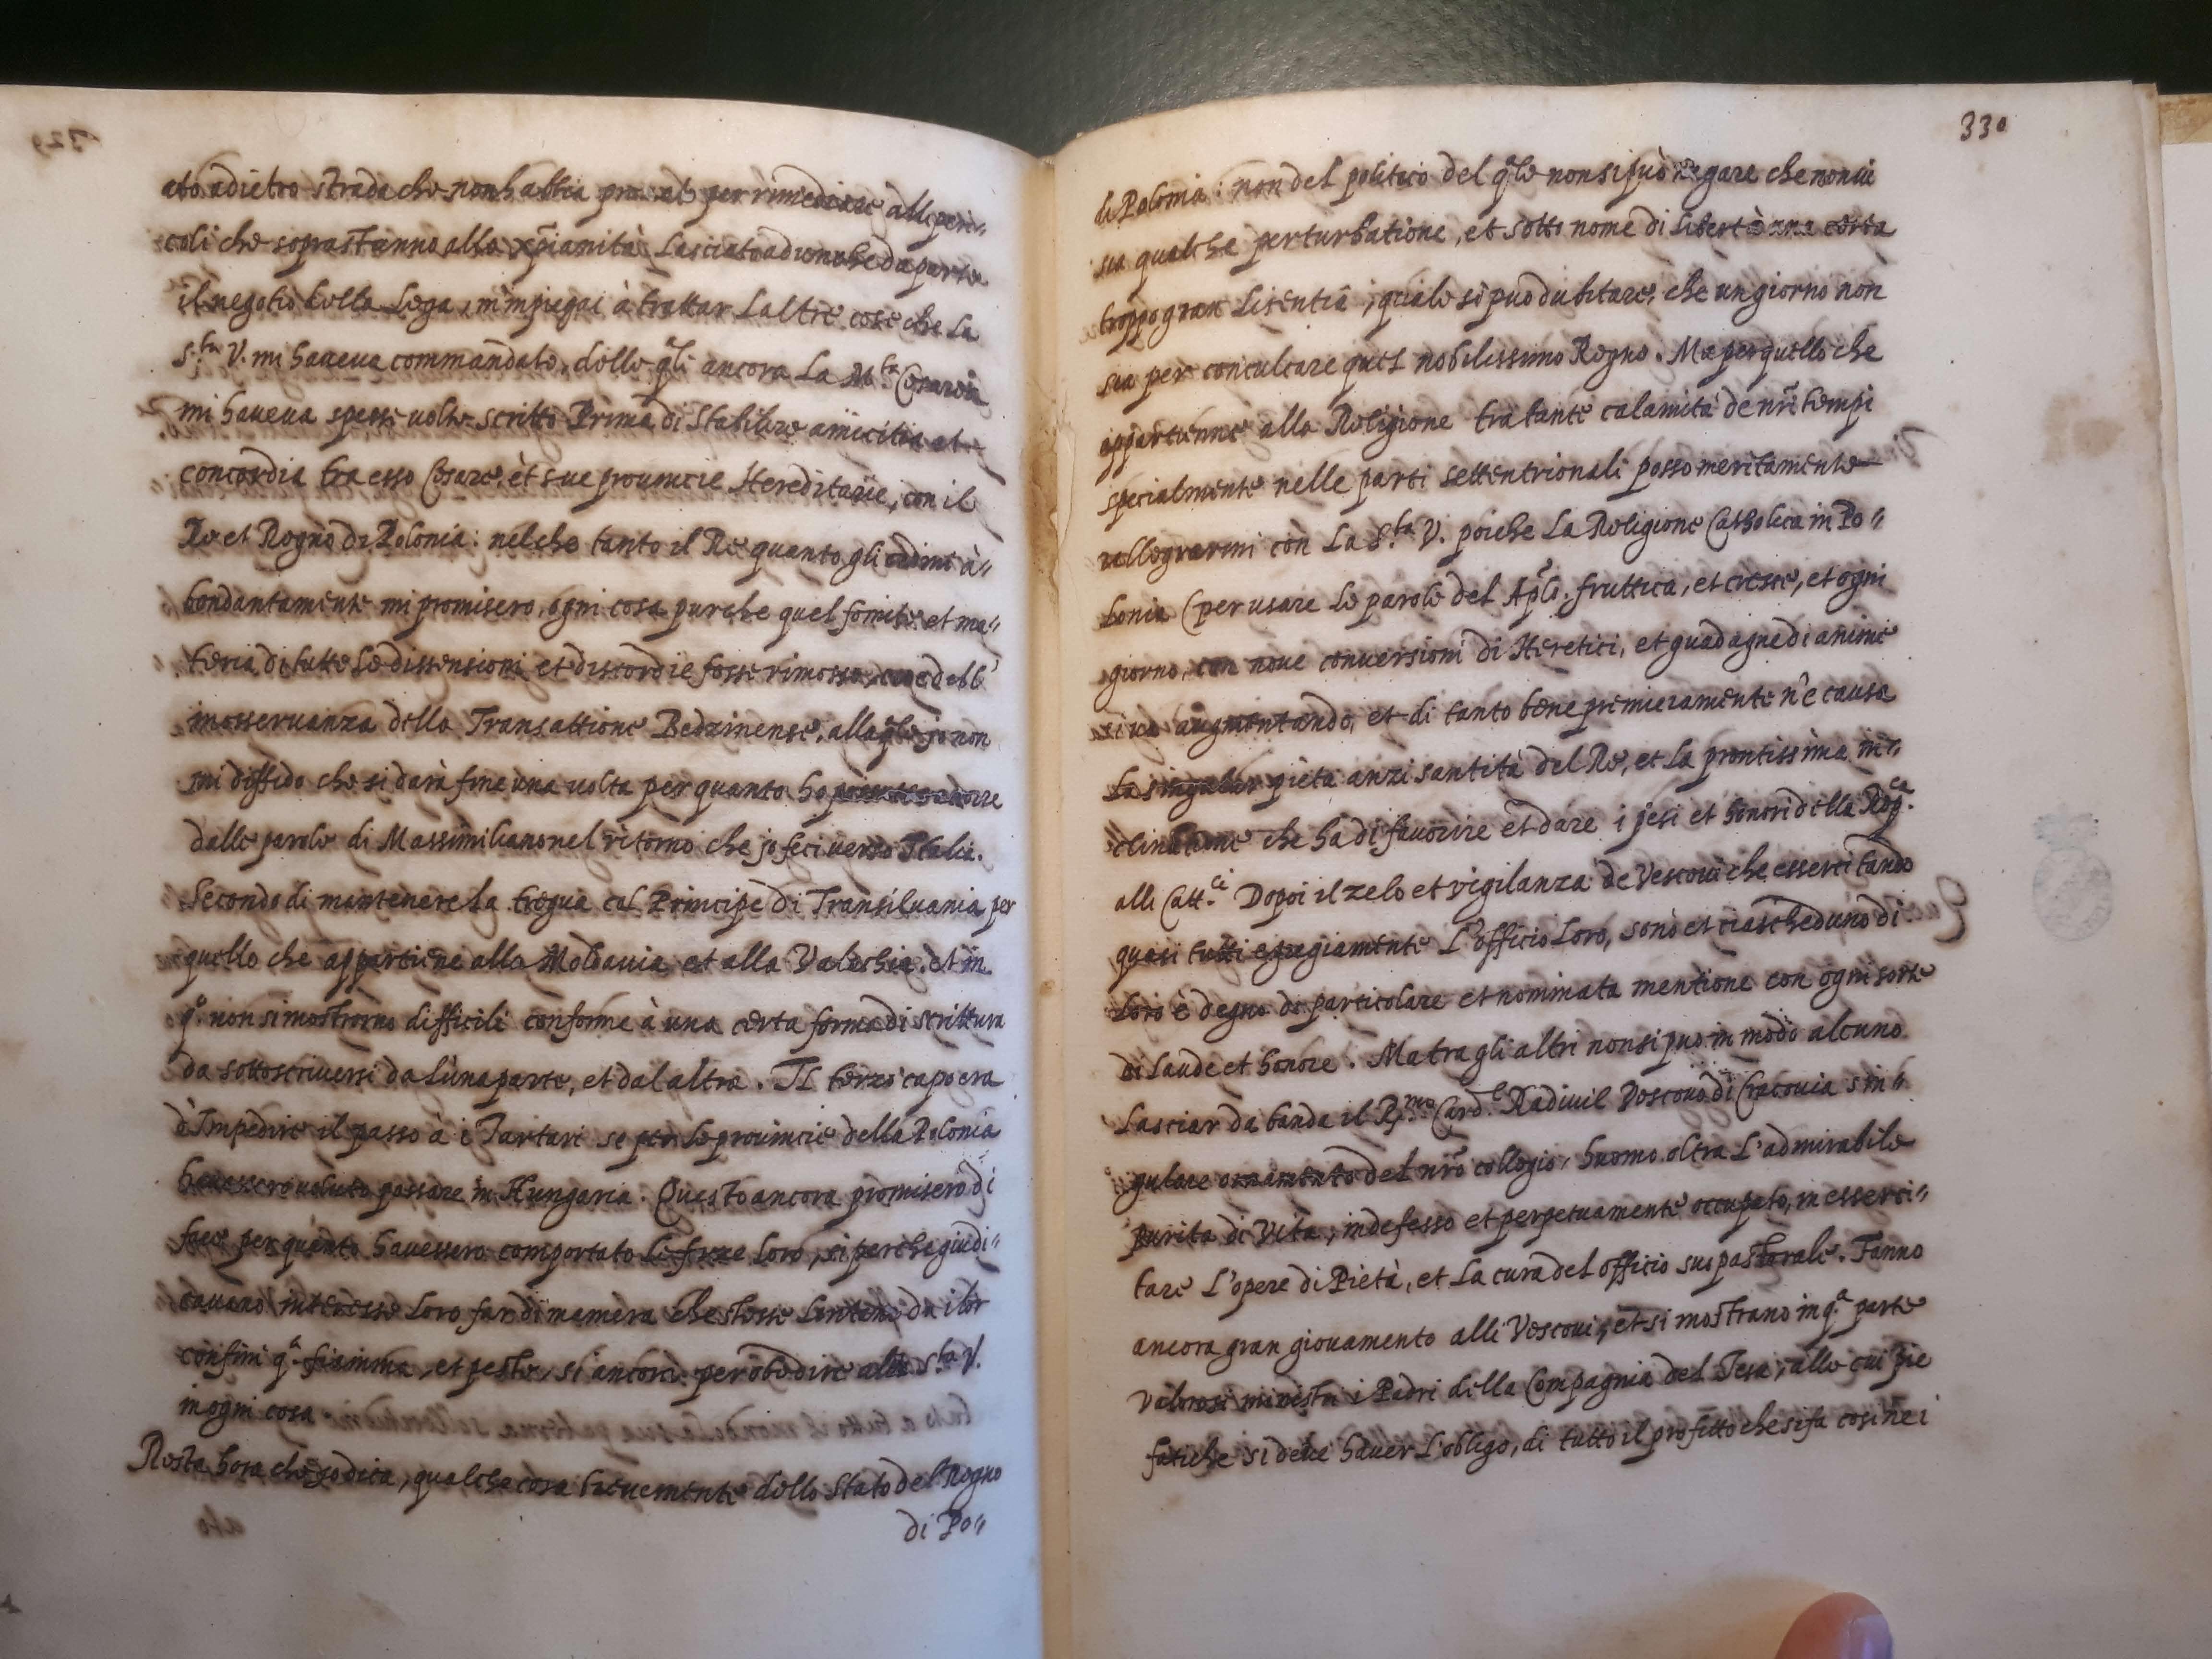 ato adietro strada che non habbia per rimediare alli peri"
coli che soprastanno alla xp̃ianità. Lasciato adunche da parte
il negotio della Lega, m'impiegai à trattar l'altre cose che La
S.ta V. mi haueua commandato, delle q̃li ancora La M.ta Cesarea
mi haueua spesse uolte scritto Prima di Stabilire amicitia et
concordia tra esso Cesare, et sue prouincie Hereditarie, con il
Re et Regno di Polonia: nel che tanto il Re quanto gli ordini à"
bondantamente mi promisero, ogni cosa purche quel fomite et ma"
teria di tutte Le dissensioni et discordie fosse rimossa, dell'
inosseruanza della Transattione Bedzinense, alla q̃le io non
mi diffido che si darà fine una uolta per quanto ho
dalle parole di Massimiliano nel ritorno che io feci uerso Italia.
Secondo di mantenere La tregua col Principe di Transiluania per
quello che appartiene alla Moldauia et alla Valachia. et in
q.o non si mostrorno difficili conforme à una certa forma di scrittura
da sottoscriuersi da l'una parte, et dal altra. Il terzo capo era
d'Impedire il passo à i Tartari se per Le prouincie della Polonia
hauessero uoluto passare in Hungaria. Questo ancora promisero di
fare per quanto hauessero comportato Le forze Loro, si perche giudi"
cauano interesse Loro far di maniera che stesse Lontano da i lor
confini q.a fiamma, et peste, si ancora per obedire alla S.ta V.
in ogni cosa
Resta hora che io dica, qualche cosa breuemente dello Stato del Regno
di Po"
330
di Polonia: non del politico del q̃le non si può negare che non ui
sia qualche perturbatione, et sotto nome di Libertà una certa
troppo gran Licentia, quale si può dubitare, che un giorno non
sia per conculcare quel nobilissimo Regno. Ma per quello che
appartiene alla Religione tra tante calamità de nr̃i tempi
specialmente nelle parti settentrionali posso meritamente
rallegrarmi con La S.ta V. poiche La Religione Catholica in Po"
lonia (per usare Le parole del Ap̃lo. fruttica, et cresse, et ogni
giorno, con noue conuersioni di Heretici, et guadagne di anime
si ua augmentando, et di tanto bene premieramente n'è causa
La singular pietà anzi santità del Re, et La prontissima in"
clinatione che ha di fauorire et dare i pesi et honori della Rep.ca
alli Catt.ci Dopoi il zelo et vigilanza de Vescoui che essercitando
quasi tutti egregiamente L'officio Loro, sono et ciascheduno di
Loro è degno di particolare et nominata mentione con ogni sorte
di Laude et honore. Ma tra gli altri non si puo in modo alcuno
Lasciar da banda il R.mo Card.le Radiuil Vescouo di Cracouia sin"
gulare ornamento del nr̃o collegio, huomo oltra L'admirabile
purita di Vita, indefesso et perpetuamente occupato, in esserci"
tare L'opere di Pietà, et La cura del officio suo pastorale. Fanno
ancora gran giouamento alli Vescoui, et si mostrano in q.a parte
Valorosi ministri i Padri della Compagnia del Iesu, alle cui pie
fatiche si deue hauer L'obligo, di tutto il profitto che si fa cosi nei